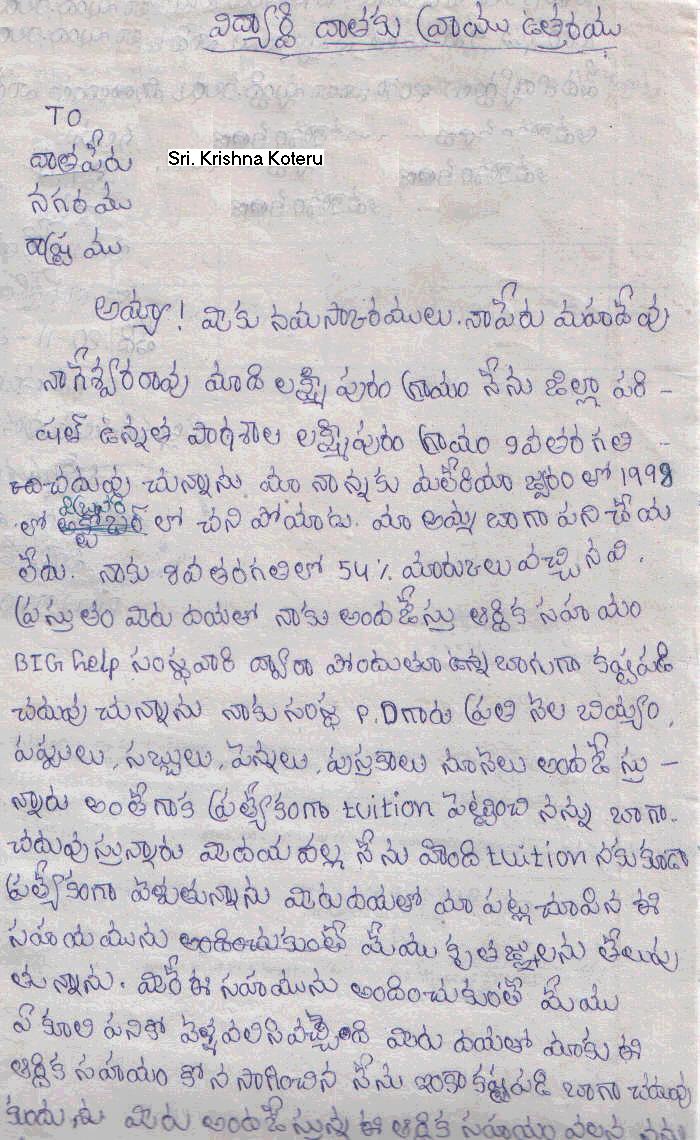 విద్యార్థి దాతకు వ్రాయు ఉత్తరము
TO
దాతపేరు Sri. Krishna Koteru
నగరము
రాష్ట్రము
అయ్యా! మీకు నమస్కారములు. నాపేరు మహదేవు
నాగేశ్వరరావు మాది లక్ష్మీపురం గ్రామం నేను జిల్లా పరి -
షత్ ఉన్నత పాఠశాల లక్ష్మీపురం గ్రామం 9వతరగతి -
చదువు చున్నాను. మా నాన్నకు మలేరియా జ్వరంతో 1998
లో లో చని పోయాడు. మా అమ్మ బాగా పని చేయ
లేదు. నాకు 8వతరగతిలో 54% మారుకులు వచ్చినవి.
ప్రస్తుతం మీరు దయతో నాకు అందజేస్తు ఆర్థిక సహాయం
BIG help సంస్థవారి ద్వారా పోందుతూ ఉన్న బాగుగా కష్టపడి
చదువు చున్నాను నాకు సంస్థ P.Dగారు ప్రతి నెల బియ్యం,
పప్పులు, సబ్బులు, పెన్నులు, పుస్తకాలు నూనెలు అందజేస్తు -
న్నారు అంతేగాక ప్రత్యేకంగా tuition పెట్టించి నన్ను బాగా.
చదువుస్తున్నారు మీదయ వల్ల నేను హింది tuition నకుకూడా
ప్రత్యేకంగా వెళుతున్నాను మీరుదయతో మా పట్లచూపిన ఈ
సహయమును అందించుకుంతే మేము కృతజ్ఞులను తెలుపు
తున్నాను. మీరే ఈ సహాయును అందించుకుంతే మేము
ఏ కూలి పనికో వెళ్ళవలసివచ్చేంది మీరు దయతో మాకు ఈ
ఆర్థిక సహాయం కోన సాగించిన నేను ఇంకా కష్టపడి బాగా చదువు
కుందును మీరు అందజేస్తున్న ఈ ఆర్థిక సహాయం వలన నన్ను